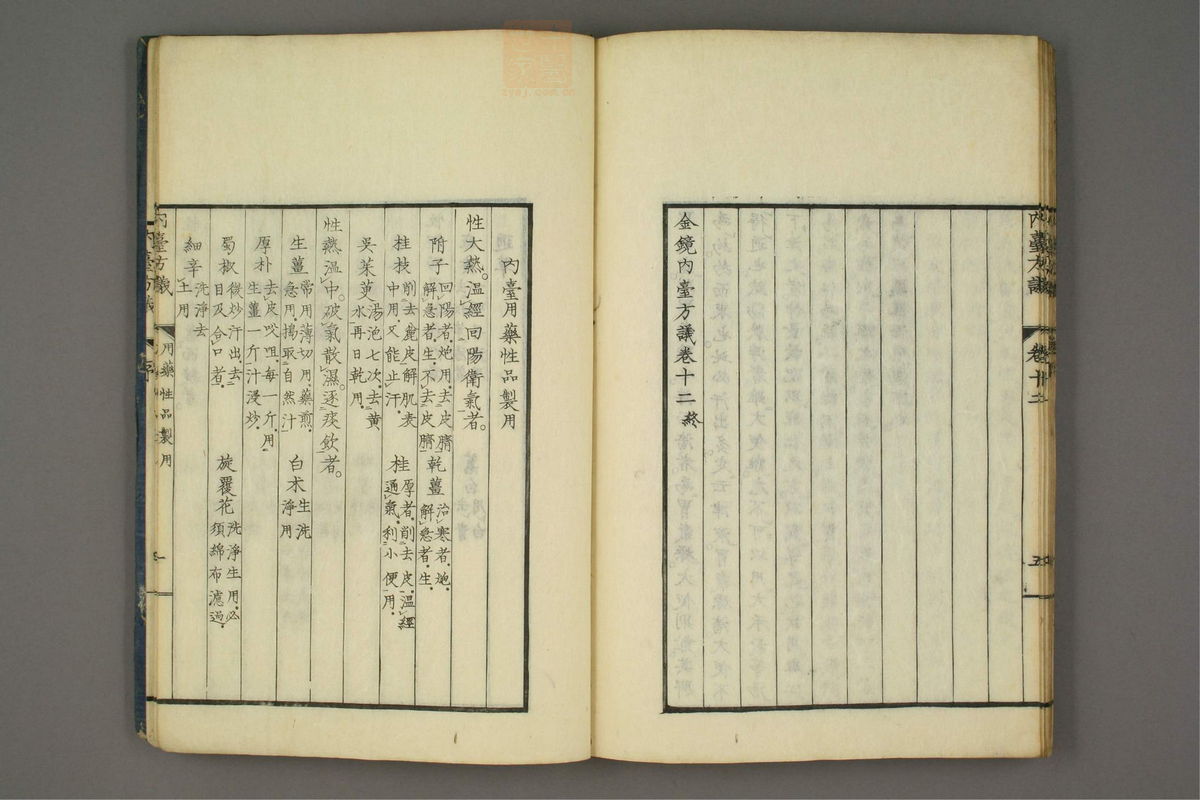 內臺方議
卷十二
五
金鏡內臺方議卷十二 終
內臺用藥性品製用
性大熱。溫經回陽衛氣者。
附子 回陽者炮用去皮臍
解急者生不去皮臍
乾薑 治寒者炮
解急者生
桂枝 削去麁皮解肌表
中用又能止汗
桂 厚者削去皮溫經
通氣利小便用
吳茱萸 湯泡七次去黃
水再日乾用
性熱溫中。破氣散濕。逐痰飲者。
生薑 常用薄切用藥煎
急用搗取自然汁
白朮 生洗
淨用
厚朴 去皮㕮咀每一斤用
生薑一斤汁浸炒
蜀椒 微炒汗出去
目及合口者
旋覆花 洗淨生用必
須綿布濾過
細辛 洗淨去
土用
內臺方議
序
用藥性品製用
一
zyaj.com.cn